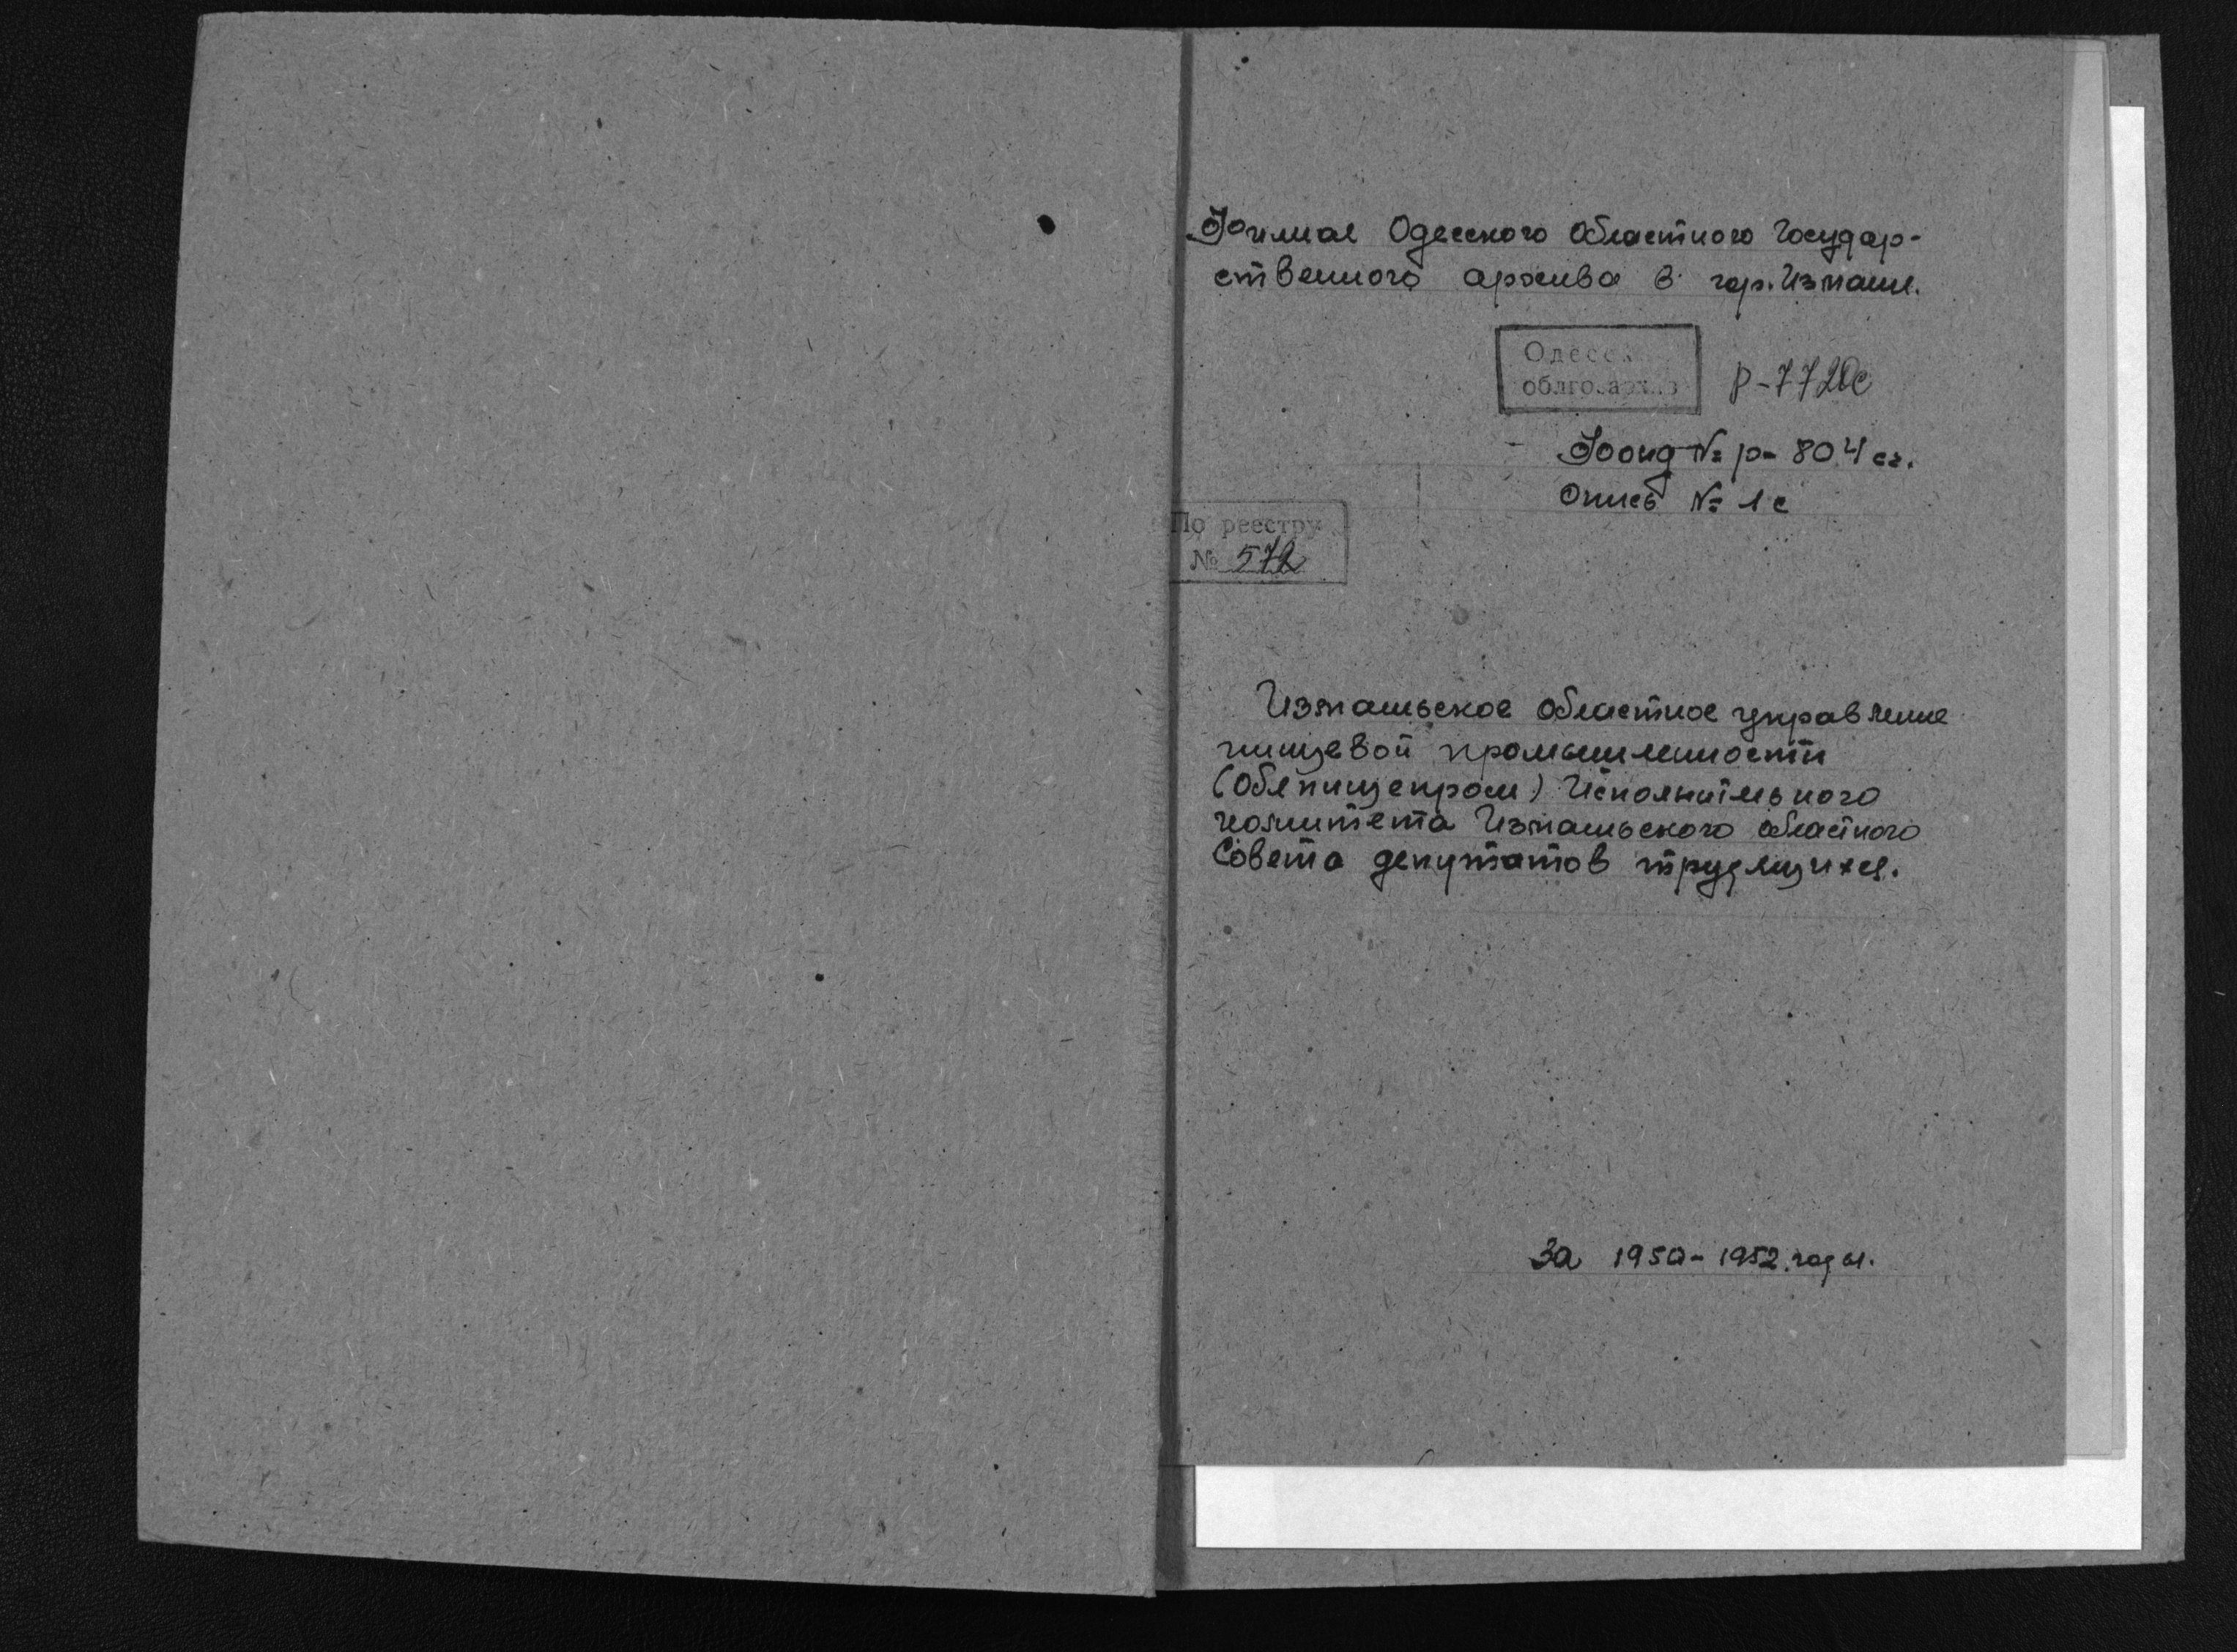 Филиал Одесского областного государ-
ственного архива в гор. Измаил.
Одесск
облгосархив
Р-7720с
Фонд № р-804 сг.
Опись № 1с
По реестру
№ 572
Измаильское областное управление
пищевой промышленности
(Облпищепром) Исполнительного
комитета Измаильского областного
Совета депутатов трудящихся.
За 1950-1952 годы.